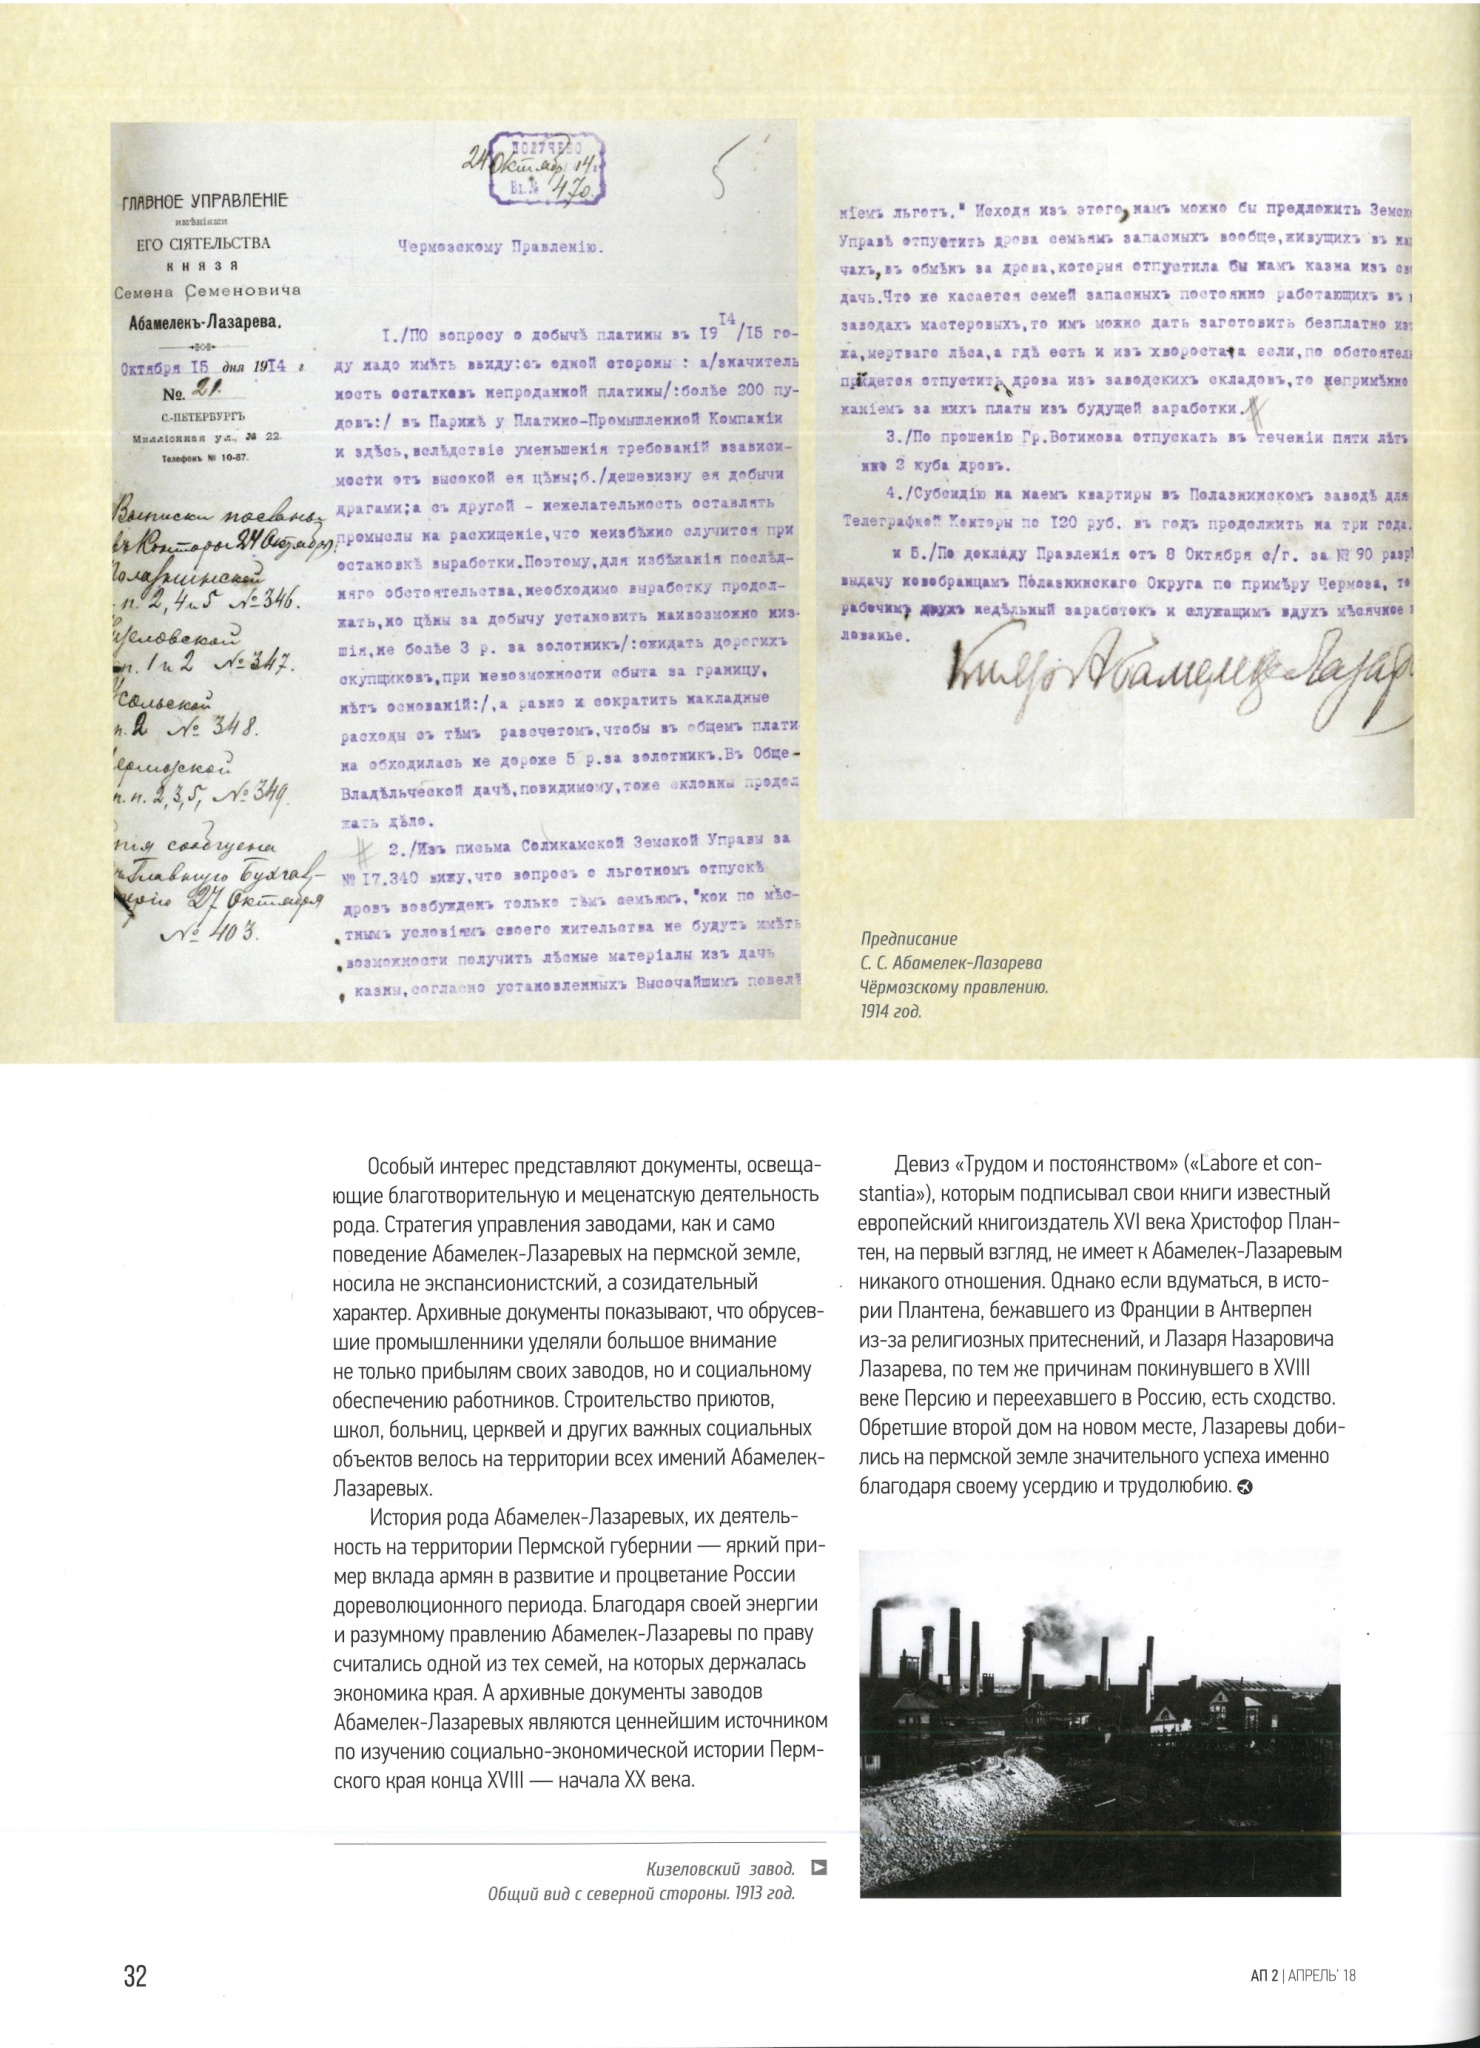 ПОЛУЧЕНО
24 Октябр 14 г.
Вх. № 470.
5
ГЛАВНОЕ УПРАВЛЕНІЕ
имѣніями
ЕГО СІЯТЕЛЬСТВА
КНЯЗЯ
Семена Семеновича
Абамелекъ-Лазарева.
Октября 15 дня 1914 г.
№ 21.
С.-ПЕТЕРБУРГЪ
Милліонная ул., № 22.
Телефонъ № 10-87.
Выписки посланы
въ Конторы 24 Октября
Полазнинской
п. 2, 4 и 5 № 346.
Кизеловской
п. 1 и 2 № 347.
Усольской
п. 2 № 348.
Чермозской
п.п. 2, 3, 5, № 349.
сообщена
Главную Бухгал-
терію 27 Октября
№ 403.
Чермозскому Правленію.
I./ПО вопросу о добычѣ платины въ 1914/15 го-
ду надо имѣть ввиду:съ одной стороны : а/значитель
ность остатковъ непроданной платины/:болѣе 200 пу-
довъ:/ въ Парижѣ у Платино-Промышленной Компаніи
и здѣсь,вслѣдствіе уменьшенія требованій взависи-
мости отъ высокой ея цѣны;б./дешевизну ея добычи
драгами;а съ другой - нежелательность оставлять
промыслы на расхищеніе,что неизбѣжно случится при
остановкѣ выработки.Поэтому,для избѣжанія послѣд-
няго обстоятельства,необходимо выработку продол-
жать,но цѣны за добычу установить наивозможно низ-
шія,не болѣе 3 р. за золотникъ/:ожидать дорогихъ
скупщиковъ,при невозможности сбыта за границу,
нѣтъ основаній:/,а равно и сократить накладные
расходы съ тѣмъ разсчетомъ,чтобы въ общемъ плати
на обходилась не дороже 5 р.за золотникъ.Въ Обще-
Владѣльческой дачѣ,повидимому,тоже склонны продол
жать дѣло.
2./Изъ письма Соликамской Земской Управы за
№ 17.340 вижу,что вопросъ о льготномъ отпускѣ
дровъ возбужденъ только тѣмъ семьямъ, "кои по мѣс-
тнымъ условіямъ своего жительства не будутъ имѣть
возможности получить лѣсные матеріалы изъ дачъ
казны,согласно установленныхъ Высочайшимъ повелѣ
ніемъ льготъ." Исходя изъ этого,намъ можно бы предложить Земск
Управѣ отпустить дрова семьямъ запасныхъ вообще,живущихъ въ на
чахъ,въ обмѣнъ за дрова,которыя отпустила бы намъ казна изъ св
дачъ.Что же касается семей запасныхъ постоянно работающихъ въ
заводахъ мастеровыхъ,то имъ можно дать заготовить безплатно из
жа,мертваго лѣса,а гдѣ есть и изъ хвороста,а если,по обстоятель
придется отпустить дрова изъ заводскихъ складовъ,то непримѣнно
жаніемъ за нихъ платы изъ будущей заработки.
3./По прошенію Гр.Вотинова отпускать въ теченіи пяти лѣтъ
но 2 куба дровъ.
4./Субсидію на наемъ квартиры въ Полазнинскомъ заводѣ для
Телеграфной Конторы по 120 руб. въ годъ продолжить на три года.
и 5./По докладу Правленія отъ 8 Октября с/г. за № 90 разр
выдачу новобранцамъ Полазнинскаго Округа по примѣру Чермоза, то
рабочимъ двухъ недѣльный заработокъ и служащимъ вдухъ мѣсячное
лованье.
Князь Абамелекъ Лазаре
Предписание
С. С. Абамелек-Лазарева
Чёрмозскому правлению.
1914 год.
Особый интерес представляют документы, освеща-
ющие благотворительную и меценатскую деятельность
рода. Стратегия управления заводами, как и само
поведение Абамелек-Лазаревых на пермской земле,
носила не экспансионистский, а созидательный
характер. Архивные документы показывают, что обрусев-
шие промышленники уделяли большое внимание
не только прибылям своих заводов, но и социальному
обеспечению работников. Строительство приютов,
школ, больниц, церквей и других важных социальных
объектов велось на территории всех имений Абамелек-
Лазаревых.
История рода Абамелек-Лазаревых, их деятель-
ность на территории Пермской губернии — яркий при-
мер вклада армян в развитие и процветание России
дореволюционного периода. Благодаря своей энергии
и разумному правлению Абамелек-Лазаревы по праву
считались одной из тех семей, на которых держалась
экономика края. А архивные документы заводов
Абамелек-Лазаревых являются ценнейшим источником
по изучению социально-экономической истории Перм-
ского края конца XVIII — начала XX века.
Девиз «Трудом и постоянством» («Labore et con-
stantia»), которым подписывал свои книги известный
европейский книгоиздатель XVI века Христофор План-
тен, на первый взгляд, не имеет к Абамелек-Лазаревым
никакого отношения. Однако если вдуматься, в исто-
рии Плантена, бежавшего из Франции в Антверпен
из-за религиозных притеснений, и Лазаря Назаровича
Лазарева, по тем же причинам покинувшего в XVIII
веке Персию и переехавшего в Россию, есть сходство.
Обретшие второй дом на новом месте, Лазаревы доби-
лись на пермской земле значительного успеха именно
благодаря своему усердию и трудолюбию.
Кизеловский завод.
Общий вид с северной стороны. 1913 год.
32
АП 2 | АПРЕЛЬ' 18